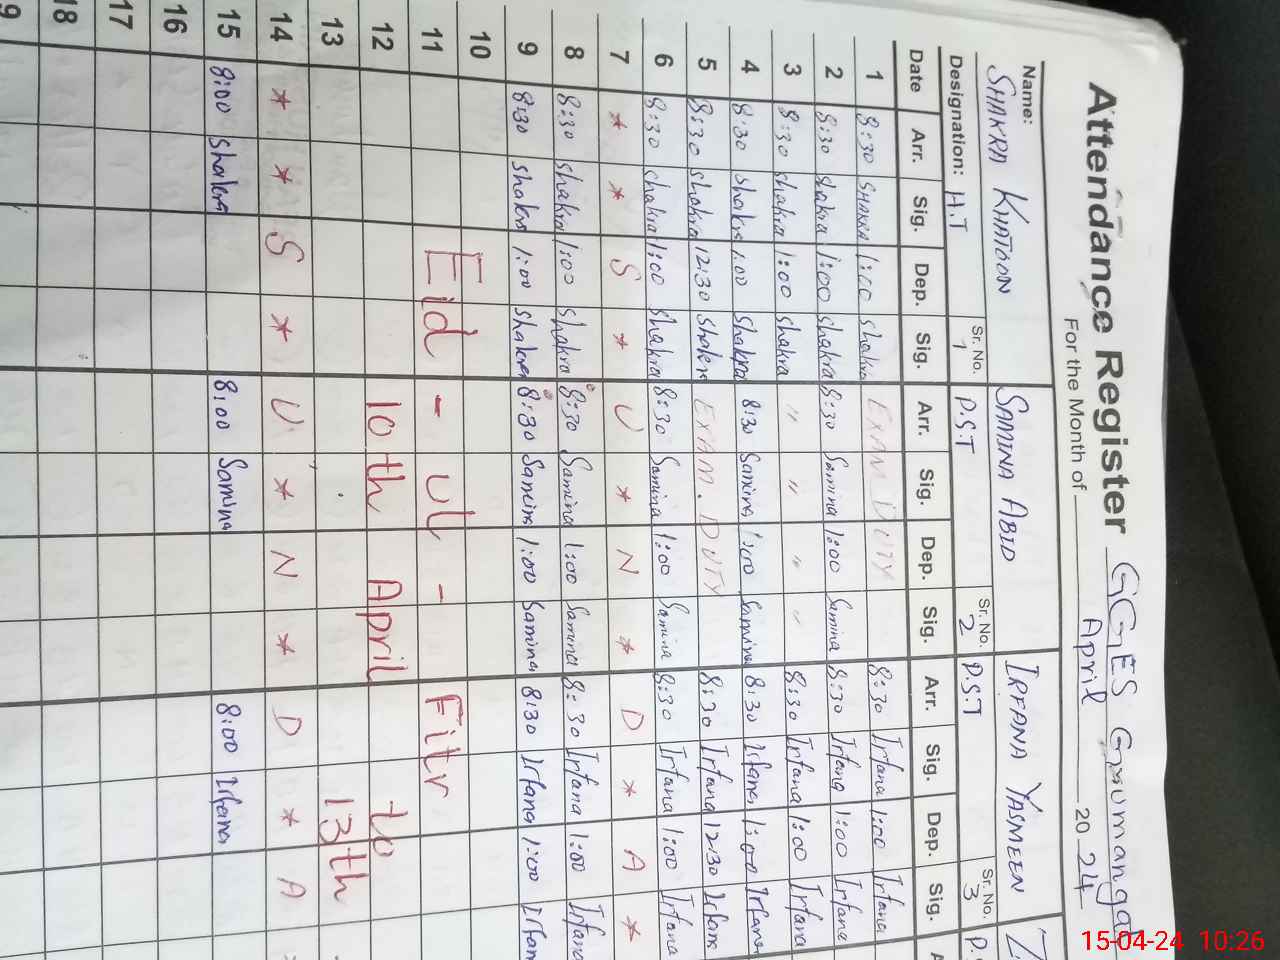 Attendance Register GGES Gxumangal
For the Month of April 2024
Name: SHAKRA KHATOON SAMINA ABID IRFANA YASMEEN
Designation: H.T Sr. No. 1 P.S.T Sr. No. 2 P.S.T Sr. No. 3
Date Arr. Sig. Dep. Sig. Arr. Sig. Dep. Sig. Arr. Sig. Dep. Sig.
1 8:30 SHAKRA 1:00 Shakra EXAM DUTY 8:30 Irfana 1:00 Irfana
2 8:30 Shakra 1:00 Shakra 8:30 Samina 1:00 Samina 8:30 Irfana 1:00 Irfana
3 8:30 Shakra 1:00 Shakra " " " " 8:30 Irfana 1:00 Irfana
4 8:30 Shakra 1:00 Shakra 8:30 Samina 1:00 Samina 8:30 Irfana 1:00 Irfana
5 8:30 Shakra 12:30 Shakra EXAM. DUTY 8:30 Irfana 12:30 Irfana
6 8:30 Shakra 1:00 Shakra 8:30 Samina 1:00 Samina 8:30 Irfana 1:00 Irfana
7 * * S * U * N * D * A *
8 8:30 Shakra 1:00 Shakra 8:30 Samina 1:00 Samina 8:30 Irfana 1:00 Irfana
9 8:30 Shakra 1:00 Shakra 8:30 Samina 1:00 Samina 8:30 Irfana 1:00 Irfan
10
11 Eid - ul - Fitr
12 10th April to
13 13th
14 * * S * U * N * D * A
15 8:00 Shakra 8:00 Samina 8:00 Irfana
16
17
18
15-04-24 10:26